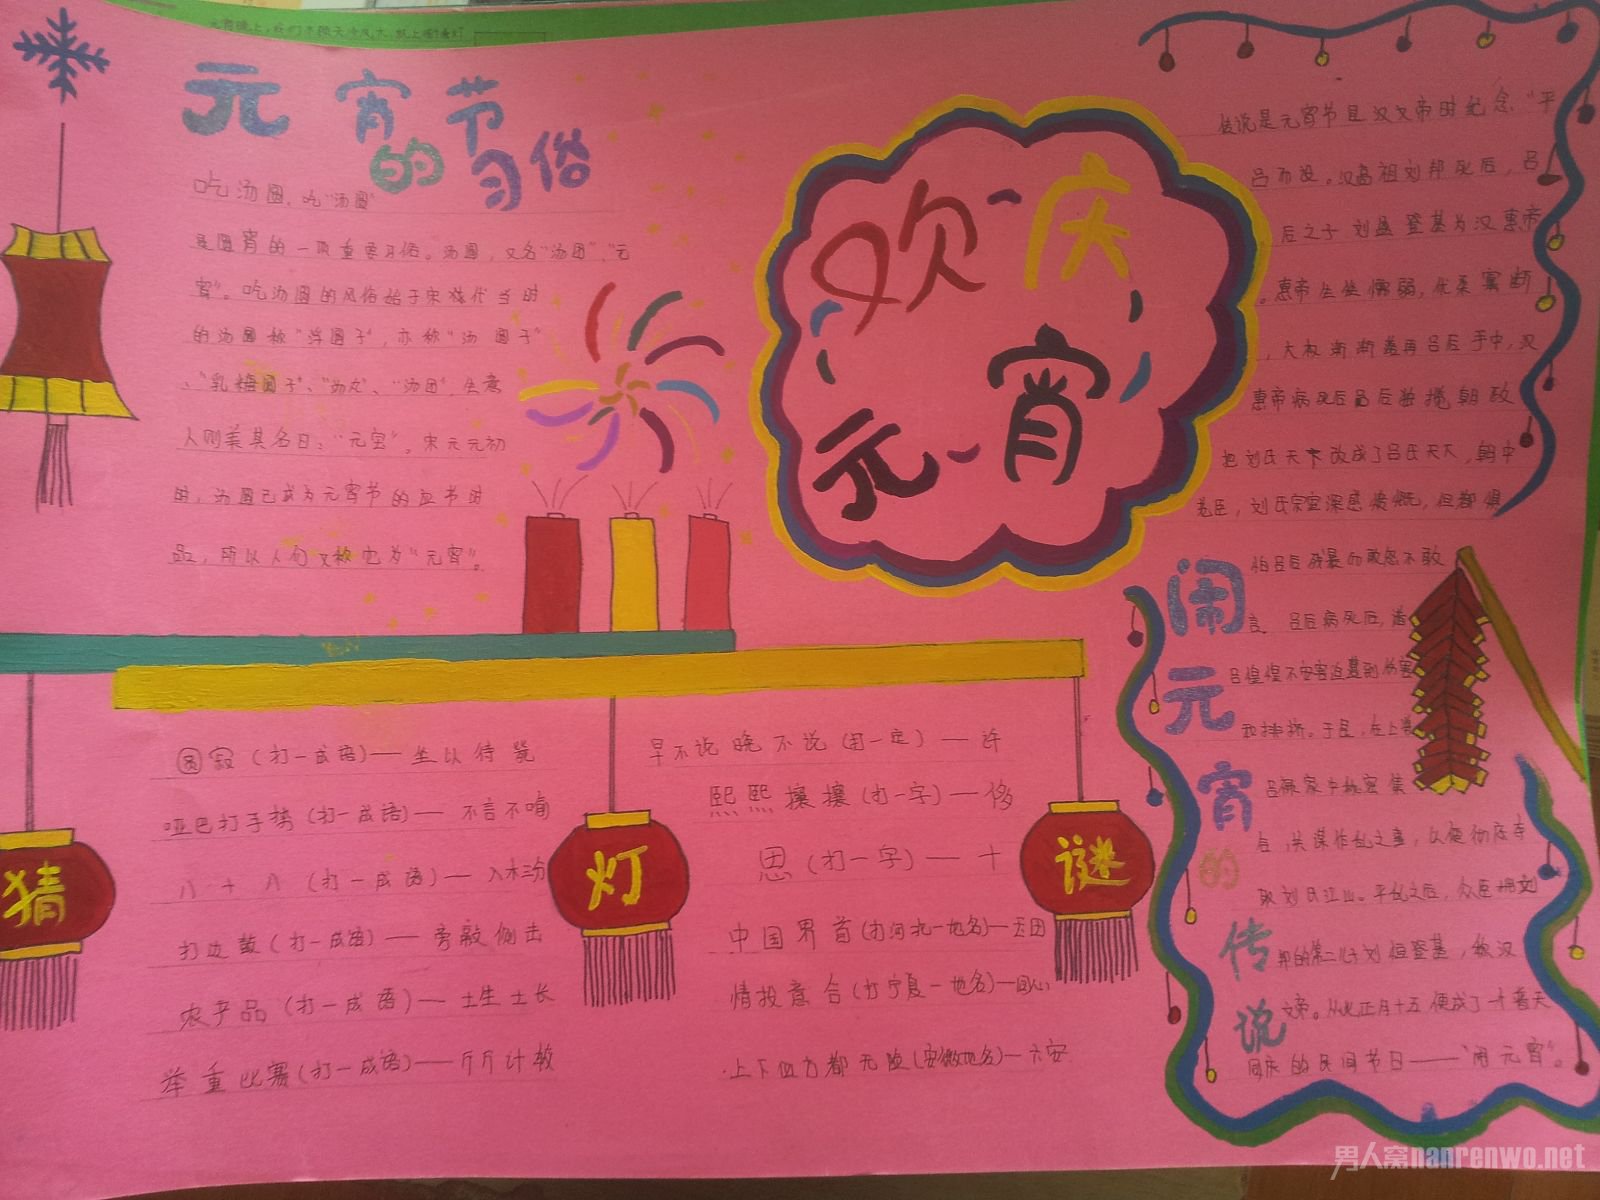 元宵节
的习俗
吃汤圆、吃"汤圆"
是圆宵的一项重要习俗。汤圆,又名"汤团"、"元
宵"。吃汤圆的风俗始于宋 代当时
的汤圆称"浮圆子",亦称"汤圆子"
、"乳糖圆子"、"汤丸"、"汤团",生意
人则美其名曰:"元宝"。宋元元初
时,汤圆已成为元宵节的应书时
品,所以人们又称它为"元宵"。
欢庆
元宵
传说是元宵节是汉文帝时纪念"平
吕而设。汉高祖刘邦死后,吕
后之子刘盈登基为汉惠帝
。惠帝生性懦弱,优柔寡断
,大权渐渐 吕后手中,汉
惠帝病死后吕后独揽朝政
把刘氏天下改成了吕氏天下,朝中
老臣,刘氏宗室深感 慨,但都惧
怕吕后 而敢怒不敢
言 吕后病死后,诸
吕惶惶不安害 遭到伤害
和排挤。于是,在上将
吕禄家中秘密集
合,共谋作乱之事,以便彻底夺
取刘氏江山。平乱之后,众臣拥刘
邦的第二 子刘恒登基,称汉
文帝。从此正月十五便成了一个普天
同庆的民间节日——"闹元宵"。
闹元宵的传说
猜灯谜
圆寂(打一成语)—坐以待毙
哑巴打手势(打一成语)—不言不喻
八十八(打一成语)—入木三分
打边鼓(打一成语)—旁敲侧击
农产品(打一成语)—土生土长
举重比赛(打一成语)—斤斤计较
早不说晚不说(用一定)—许
熙熙攘攘(打一字)—侈
思(打一字)—十
中国界首(打河北一地名)—
情投意合(打宁夏一地名)—同心
上下四方都无险(安徽地名)—六安
男人窝nanrenwo.net